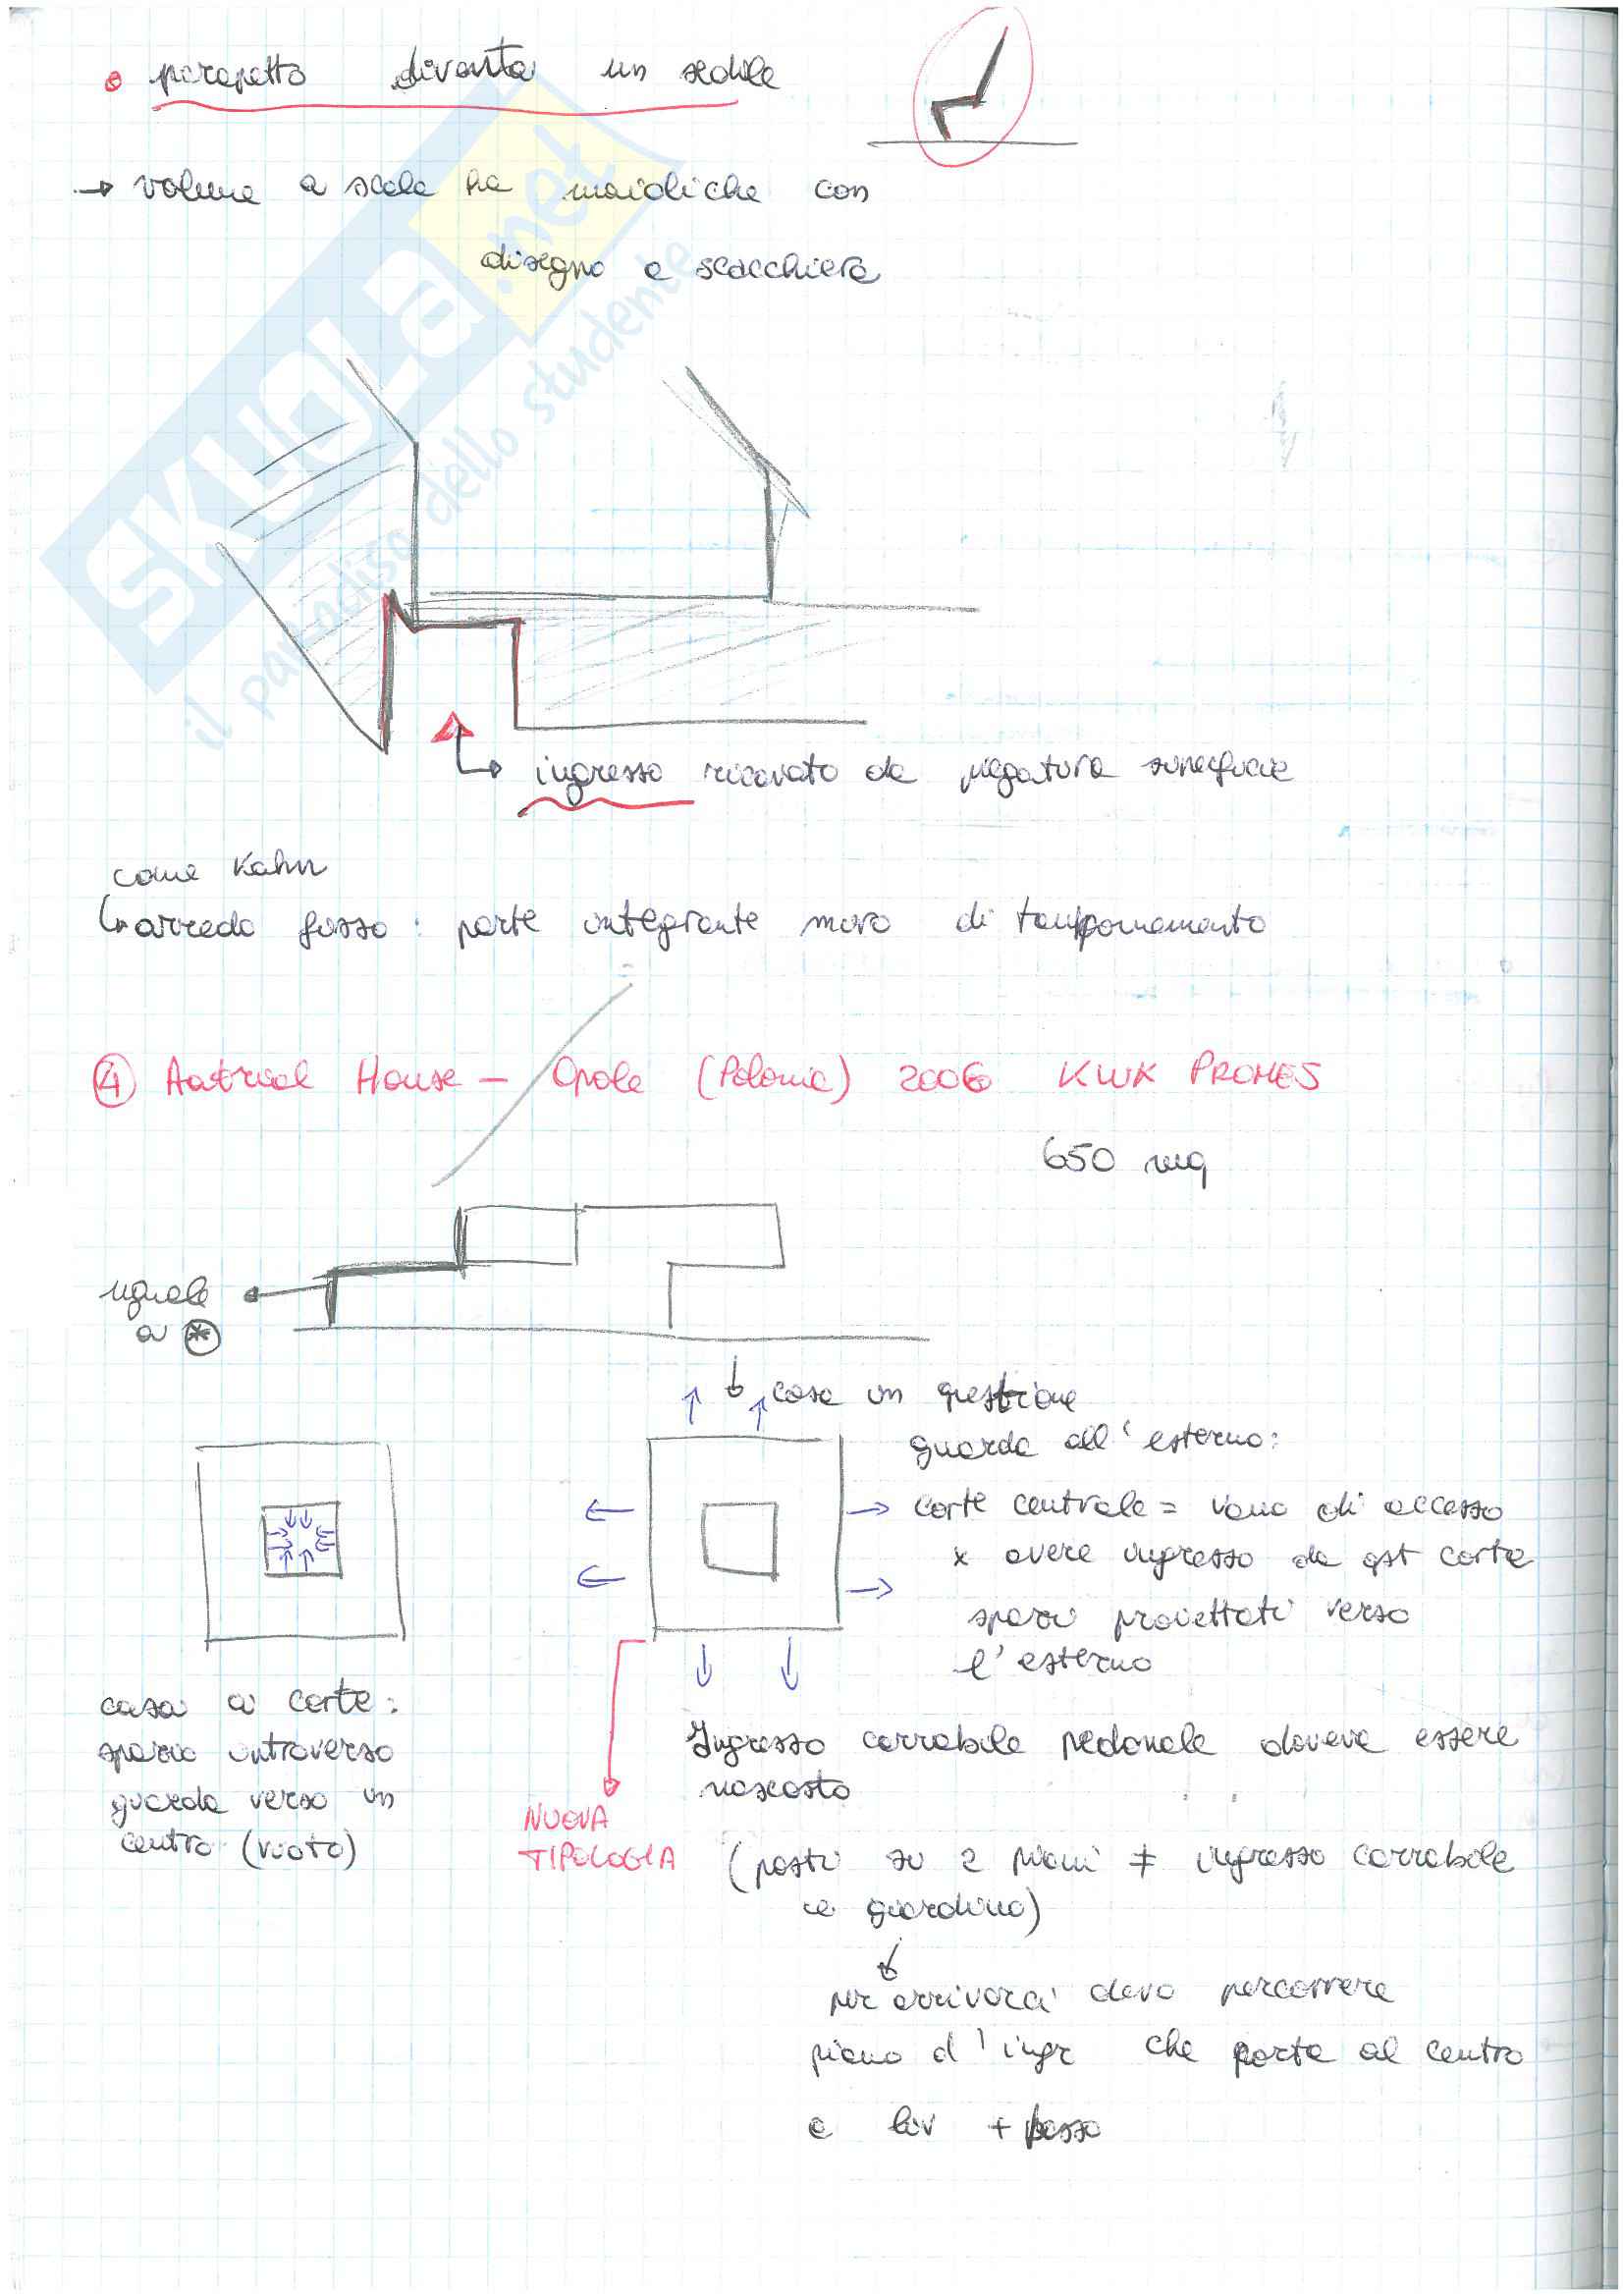 parapetto diventa un sedile
→ volume a scala ha maioliche con
disegno a scacchiera
SKUOLA.net
il paradiso dello studente
ingresso ricavato da piegatura superficie
come Kahn
↳ arredo fisso: parte integrante muro di tamponamento
④ Aatrial House – Opole (Polonia) 2006 KWK PROMES
650 mq
uguale
a ⊛
casa in questione
guarda all' esterno:
corte centrale = vano di accesso
x avere ingresso da qst corte
spazi proiettati verso
l' esterno
casa a corte:
spazio introverso
guarda verso un
centro (vuoto)
NUOVA
TIPOLOGIA
Ingresso carrabile pedonale doveva essere
nascosto
(posti su 2 piani ≠ ingresso carrabile
e giardino)
per arrivarci devo percorrere
piano d' ingr che porta al centro
a liv + basso